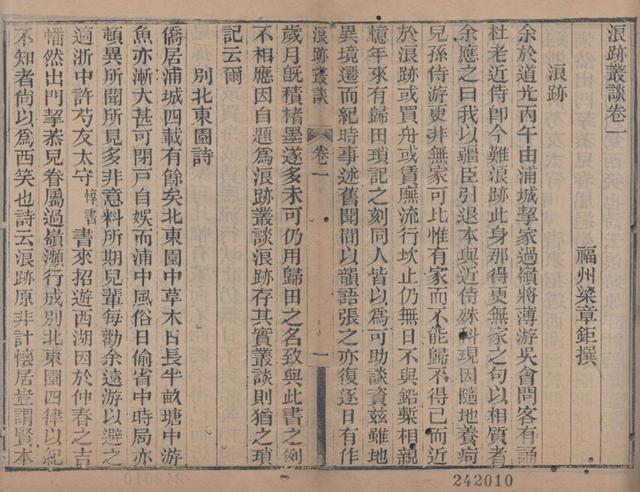 浪跡叢談卷一
福州梁章鉅撰
浪跡
余於道光丙午由浦城挈家過嶺將薄游吳會問客有誦
杜老近侍卽今難浪跡此身那得更無家之句以相質者
余應之曰我以疆臣引退本與近侍殊科現因隨地養疴
兒孫侍游更非無家可比惟有家而不能歸不得已而近
於浪跡或買舟或賃廡流行坎止仍無日不與鉛槧相親
憶年來有歸田瑣記之刻同人皆以爲可助談資茲雖地
異境遷而紀時事述舊聞間以韻語張之亦復逐日有作
浪跡叢談
卷一
一
歲月旣積楮墨遂多未可仍用歸田之名致與此書之例
不相應因自題爲浪跡叢談浪跡存其實叢談則猶之瑣
記云爾
別北東園詩
僑居浦城四載有餘矣北東園中草木日長半畝塘中游
魚亦漸大甚可閉戶自娛而浦中風俗日偷省中時局亦
頓異所聞所見多非意料所期兒輩每勸余遠游以避之
適浙中許芍友太守 惇書 書來招遊西湖因於仲春之吉
幡然出門挈恭兒眷屬過嶺瀕行成別北東園四律以紀
不知者尙以爲西笑也詩云浪跡原非計懷居豈謂賢本
242010